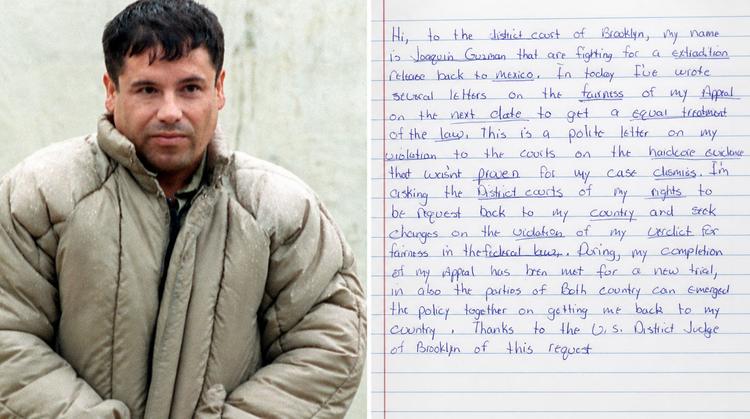 Hi, to the district court of Brooklyn, my name
is Joaquin Guzman that are fighting for a extradition
release back to mexico. In today I've wrote
several letters on the fairness of my Appeal
on the next date to get a equal treatment
of the law. This is a polite letter on my
violation to the courts on the hardcore evidence
that wasn't proven for my case dismiss. I'm
asking the District courts of my rights to
be request back to my country and seek
changes on the violation of my verdict for
fairness in the federal law. During, my completion
of my Appeal has been met for a new trial,
in also the parties of Both country can emerged
the policy together on getting me back to my
country. Thanks to the U.S. District Judge
of Brooklyn of this request